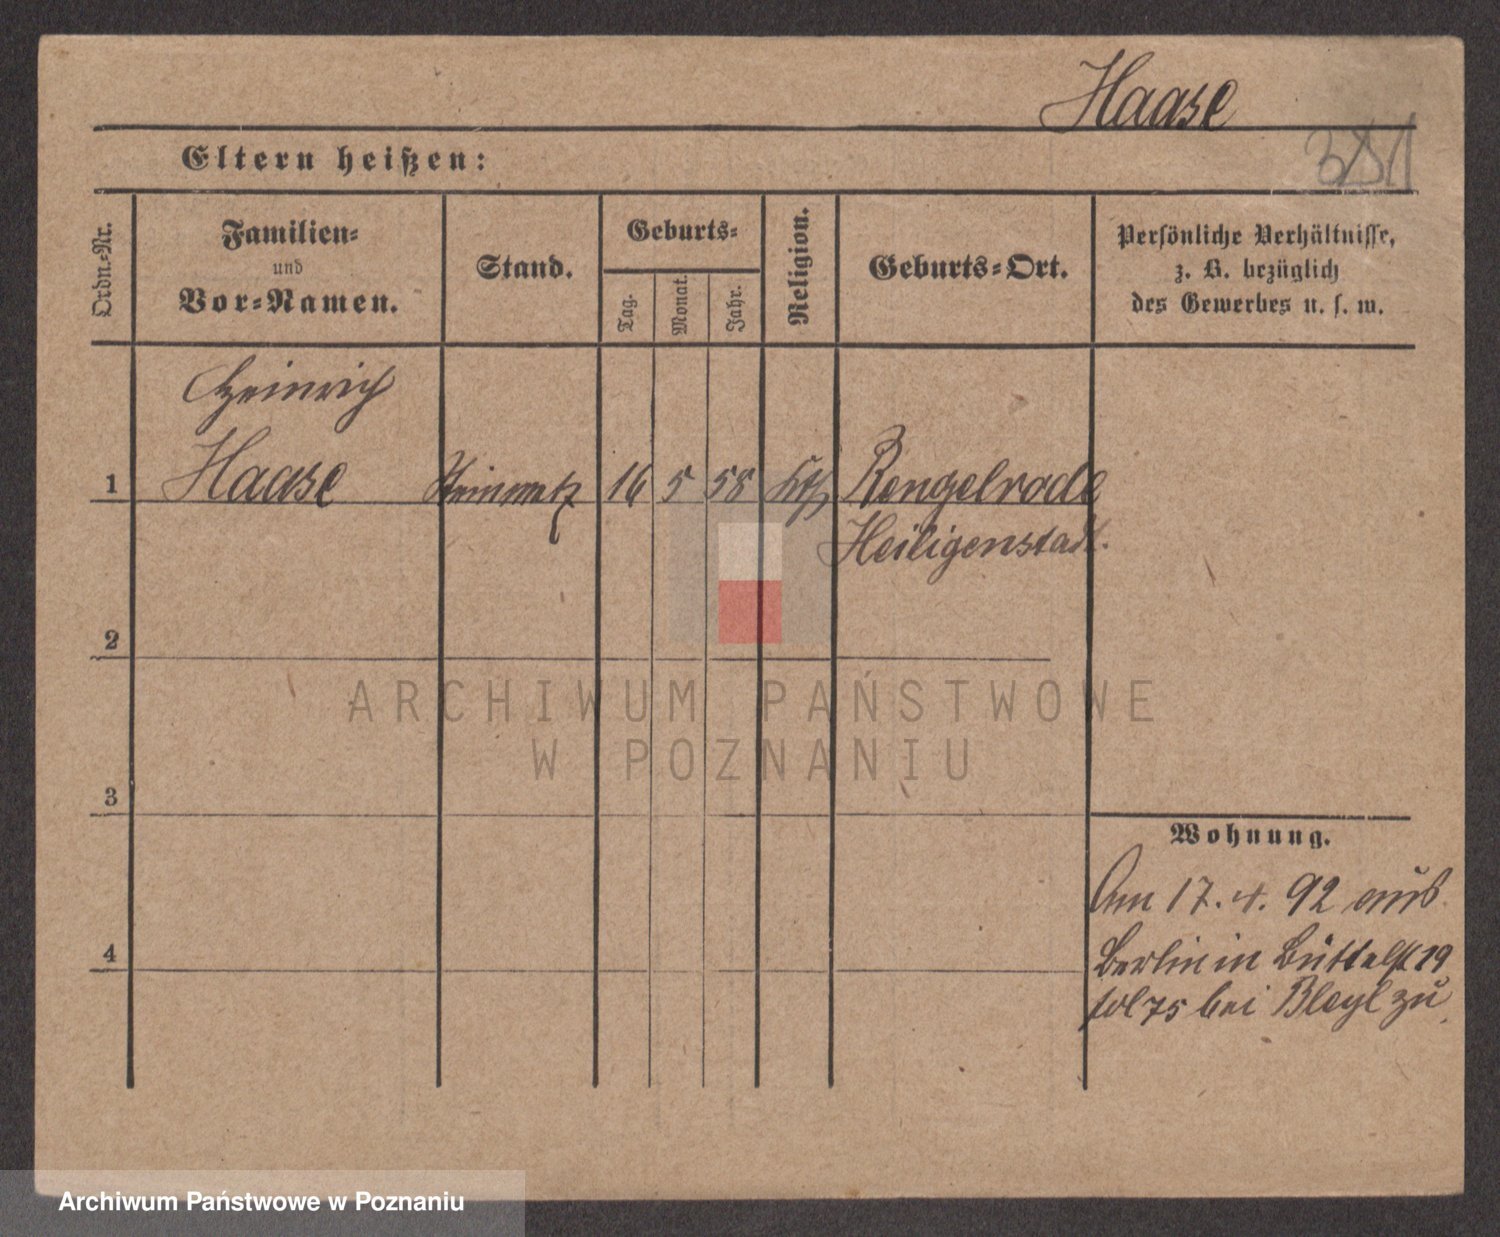 Haase
Eltern heißen:
Ordn.-Nr.
Familien-
und
Vor-Namen.
Stand.
Geburts-
Tag.
Monat.
Jahr.
Religion.
Geburts-Ort.
Persönliche Verhältnisse,
z. B. bezüglich
des Gewerbes u. s. w.
Heinrich
1 Haase Steinmetz 16 5 58 kth Rengelrode
Heiligenstadt.
2
3
4
Wohnung.
Am 17. 4. 92 aus
Berlin in Büttelst 19
fol 75 bei Bleyl zu
ARCHIWUM PAŃSTWOWE
W POZNANIU
Archiwum Państwowe w Poznaniu